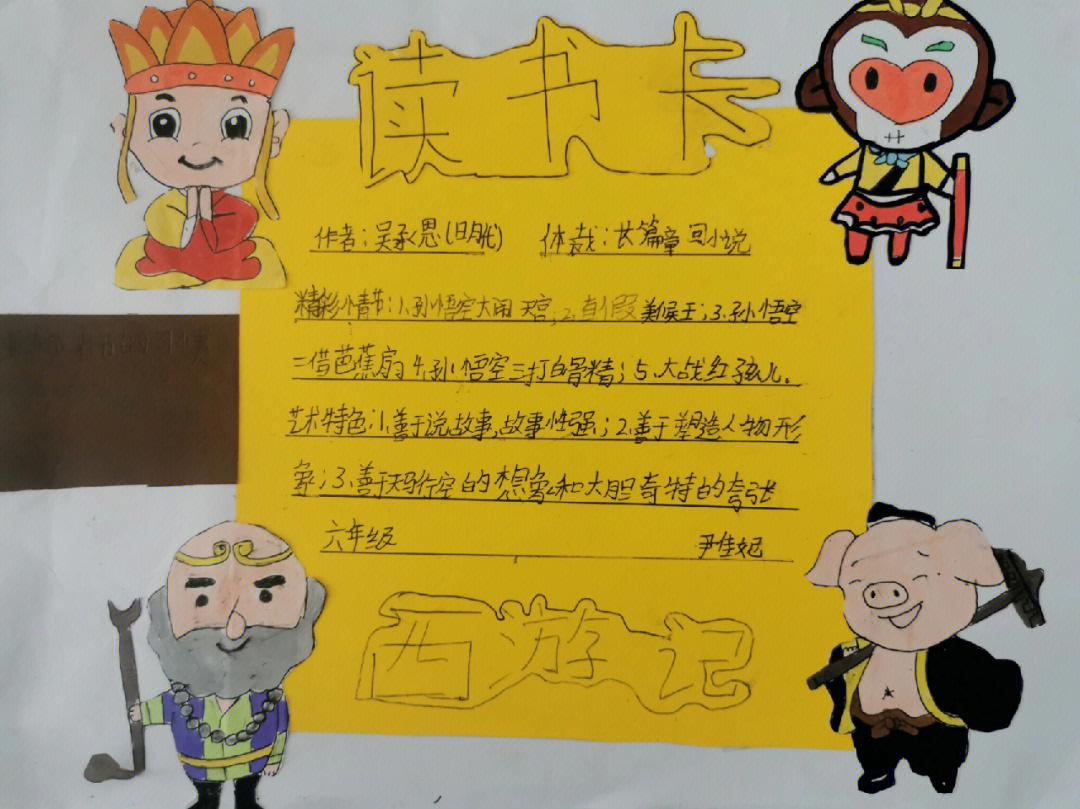 读书卡
作者：吴承恩（明代） 体裁：长篇章回小说
精彩情节：1.孙悟空大闹天宫；2.真假美候王；3.孙悟空
三借芭蕉扇4.孙悟空三打白骨精；5.大战红孩儿.
艺术特色：1.善于说故事，故事性强；2.善于塑造人物形
象；3.善于天马行空的想象和大胆奇特的夸张
六年级 尹佳妃
西游记